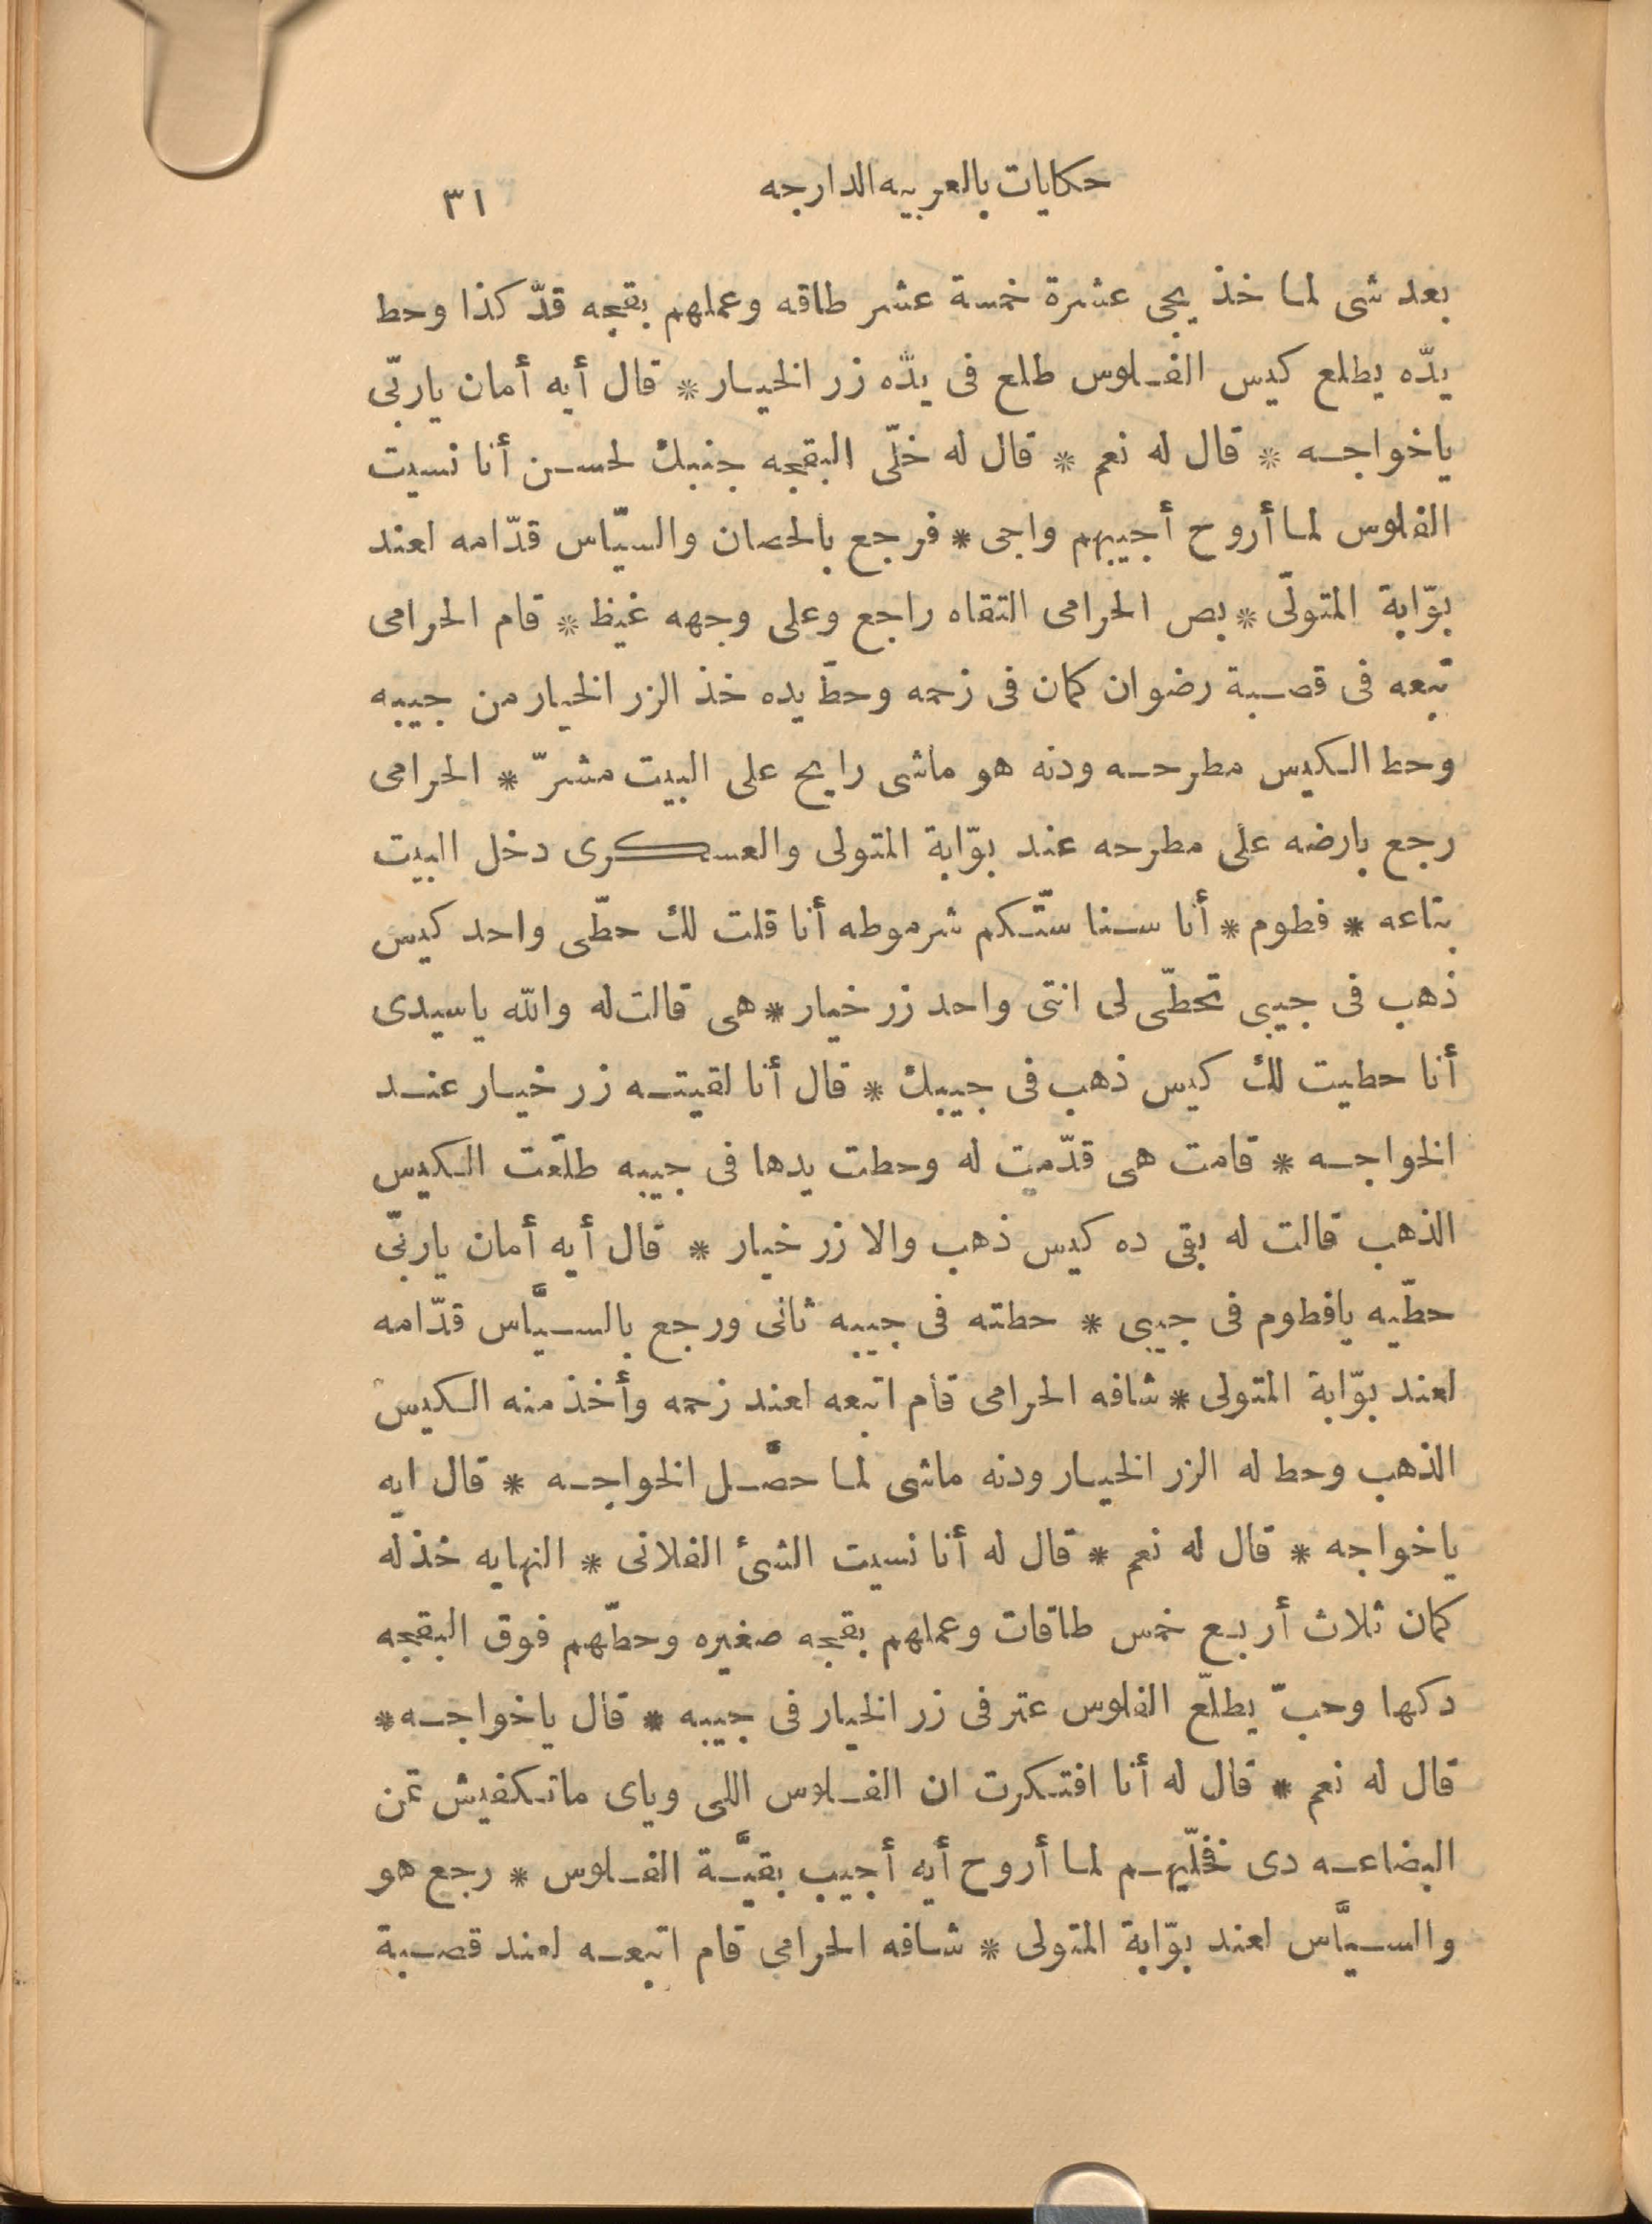 حكايات بالعربيه الدارجه
٣١
بعد شى لما خذ يجى عشرة خمسة عشر طاقه وعملهم بقجه قدّ كذا وحط
يدّه يطلع كيس الفلوس طلع فى يدّه زر الخيار * قال أيه أمان ياربّى
ياخواجه * قال له نعم * قال له خلّى البقجه جنبك لحسن أنا نسيت
الفلوس لما أروح أجيبهم واجى * فرجع بالحصان والسيّاس قدّامه لعند
بوّابة المتولّى * بص الحرامى التقاه راجع وعلى وجهه غيظ * قام الحرامى
تبعه فى قصبة رضوان كمان فى زحمه وحطّ يده خذ الزر الخيار من جيبه
وحط الكيس مطرحه ودنه هو ماشى رايح على البيت مشرّ * الحرامى
رجع بارضه على مطرحه عند بوّابة المتولى والعسكرى دخل البيت
بتاعه * فطوم * أنا سنا ستّكم شرموطه أنا قلت لك حطّى واحد كيس
ذهب فى جيبى تحطّى لى انتى واحد زر خيار * هى قالت له والله ياسيدى
أنا حطيت لك كيس ذهب فى جيبك * قال أنا لقيته زر خيار عند
الخواجه * قامت هى قدّمت له وحطت يدها فى جيبه طلّعت الكيس
الذهب قالت له بقى ده كيس ذهب والا زر خيار * قال أيه أمان ياربّى
حطّيه يافطوم فى جيبى * حطته فى جيبه ثانى ورجع بالسيّاس قدّامه
لعند بوّابة المتولى * شافه الحرامى قام اتبعه لعند زحمه وأخذ منه الكيس
الذهب وحط له الزر الخيار ودنه ماشى لما حصّل الخواجه * قال ايه
ياخواجه * قال له نعم * قال له أنا نسيت الشئ الفلانى * النهايه خذ له
كمان ثلاث أربع خمس طاقات وعملهم بقجه صغيره وحطّهم فوق البقجه
دكها وحبّ يطلّع الفلوس عتر فى زر الخيار فى جيبه * قال ياخواجه *
قال له نعم * قال له أنا افتكرت ان الفلوس اللى وياى ماتكفيش تمن
البضاعه دى فخلّيهم لما أروح أيه أجيب بقيّة الفلوس * رجع هو
والسيّاس لعند بوّابة المتولى * شافه الحرامى قام اتبعه لعند قصبة